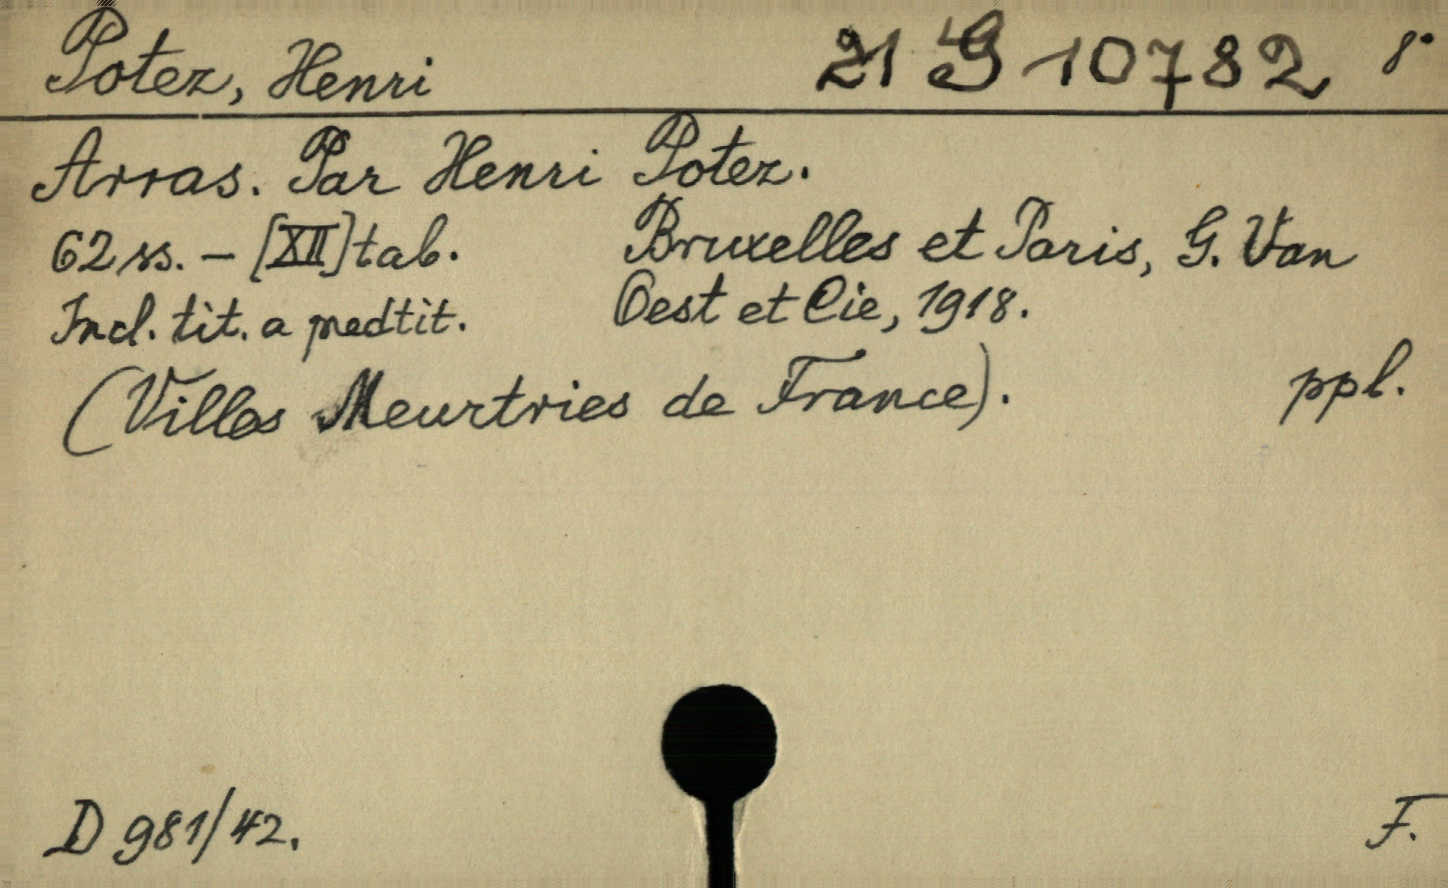 Potez, Henri 21 G 10782 8°
Arras. Par Henri Potez.
62 ss. – [XII] tab. Bruxelles et Paris, G. Van
Incl. tit. a predtit. Oest et Cie, 1918.
(Villes Meurtries de France). ppl.
D 981/42. F.